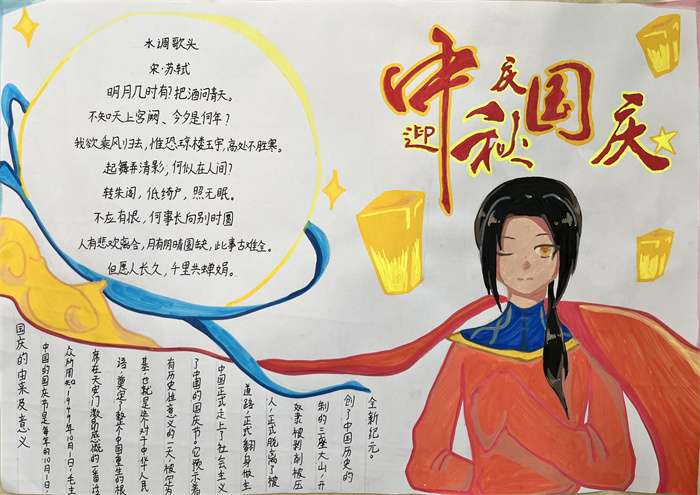 庆中秋
迎国庆
水调歌头
宋·苏轼
明月几时有?把酒问青天。
不知天上宫阙、今夕是何年?
我欲乘风归去,惟恐琼楼玉宇,高处不胜寒。
起舞弄清影,何似在人间?
转朱阁,低绮户,照无眠。
不应有恨,何事长向别时圆
人有悲欢离合,月有阴晴圆缺,此事古难全。
但愿人长久,千里共蝉娟。
国庆的由来及意义
中国的国庆节是每年的10月1日,
众所周知,1949年10月1日,毛主
席在天安门激动感慨的一番话
语,奠定了整个中国重生的根
基,也就是这个对于中华人民
有历史性意义的一天,被定为
了中国的国庆节。它预示着
中国正式走上了社会主义
道路,正式翻身做主
人,正式脱离了被
奴隶被剥削被压
制的三座大山,开
创了中国历史的
全新纪元。